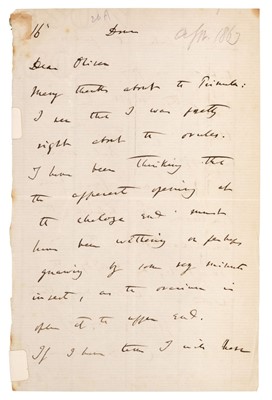 16 Down Apr. 1862
Dear Oliver
Many thanks about the Primula:
I see that I was partly
right about the ovules.
I have been thinking that
the apparent opening at
the chalaza end must
have been withering or perhaps
gnawing by some very minute
insect, as the ovarium is
open at the upper end.
If I have time I will have